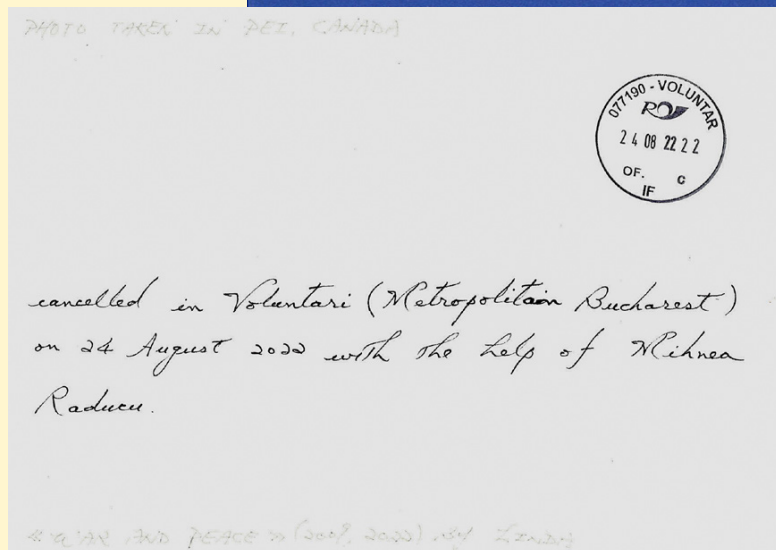 PHOTO TAKEN IN PEI, CANADA
077190 - VOLUNTAR
24 08 22 2 2
OF. C
IF
cancelled in Voluntari (Metropolitain Bucharest)
on 24 August 2022 with the help of Mihnea
Raducu.
WAR AND PEACE » (2009, 2022) BY LINDA